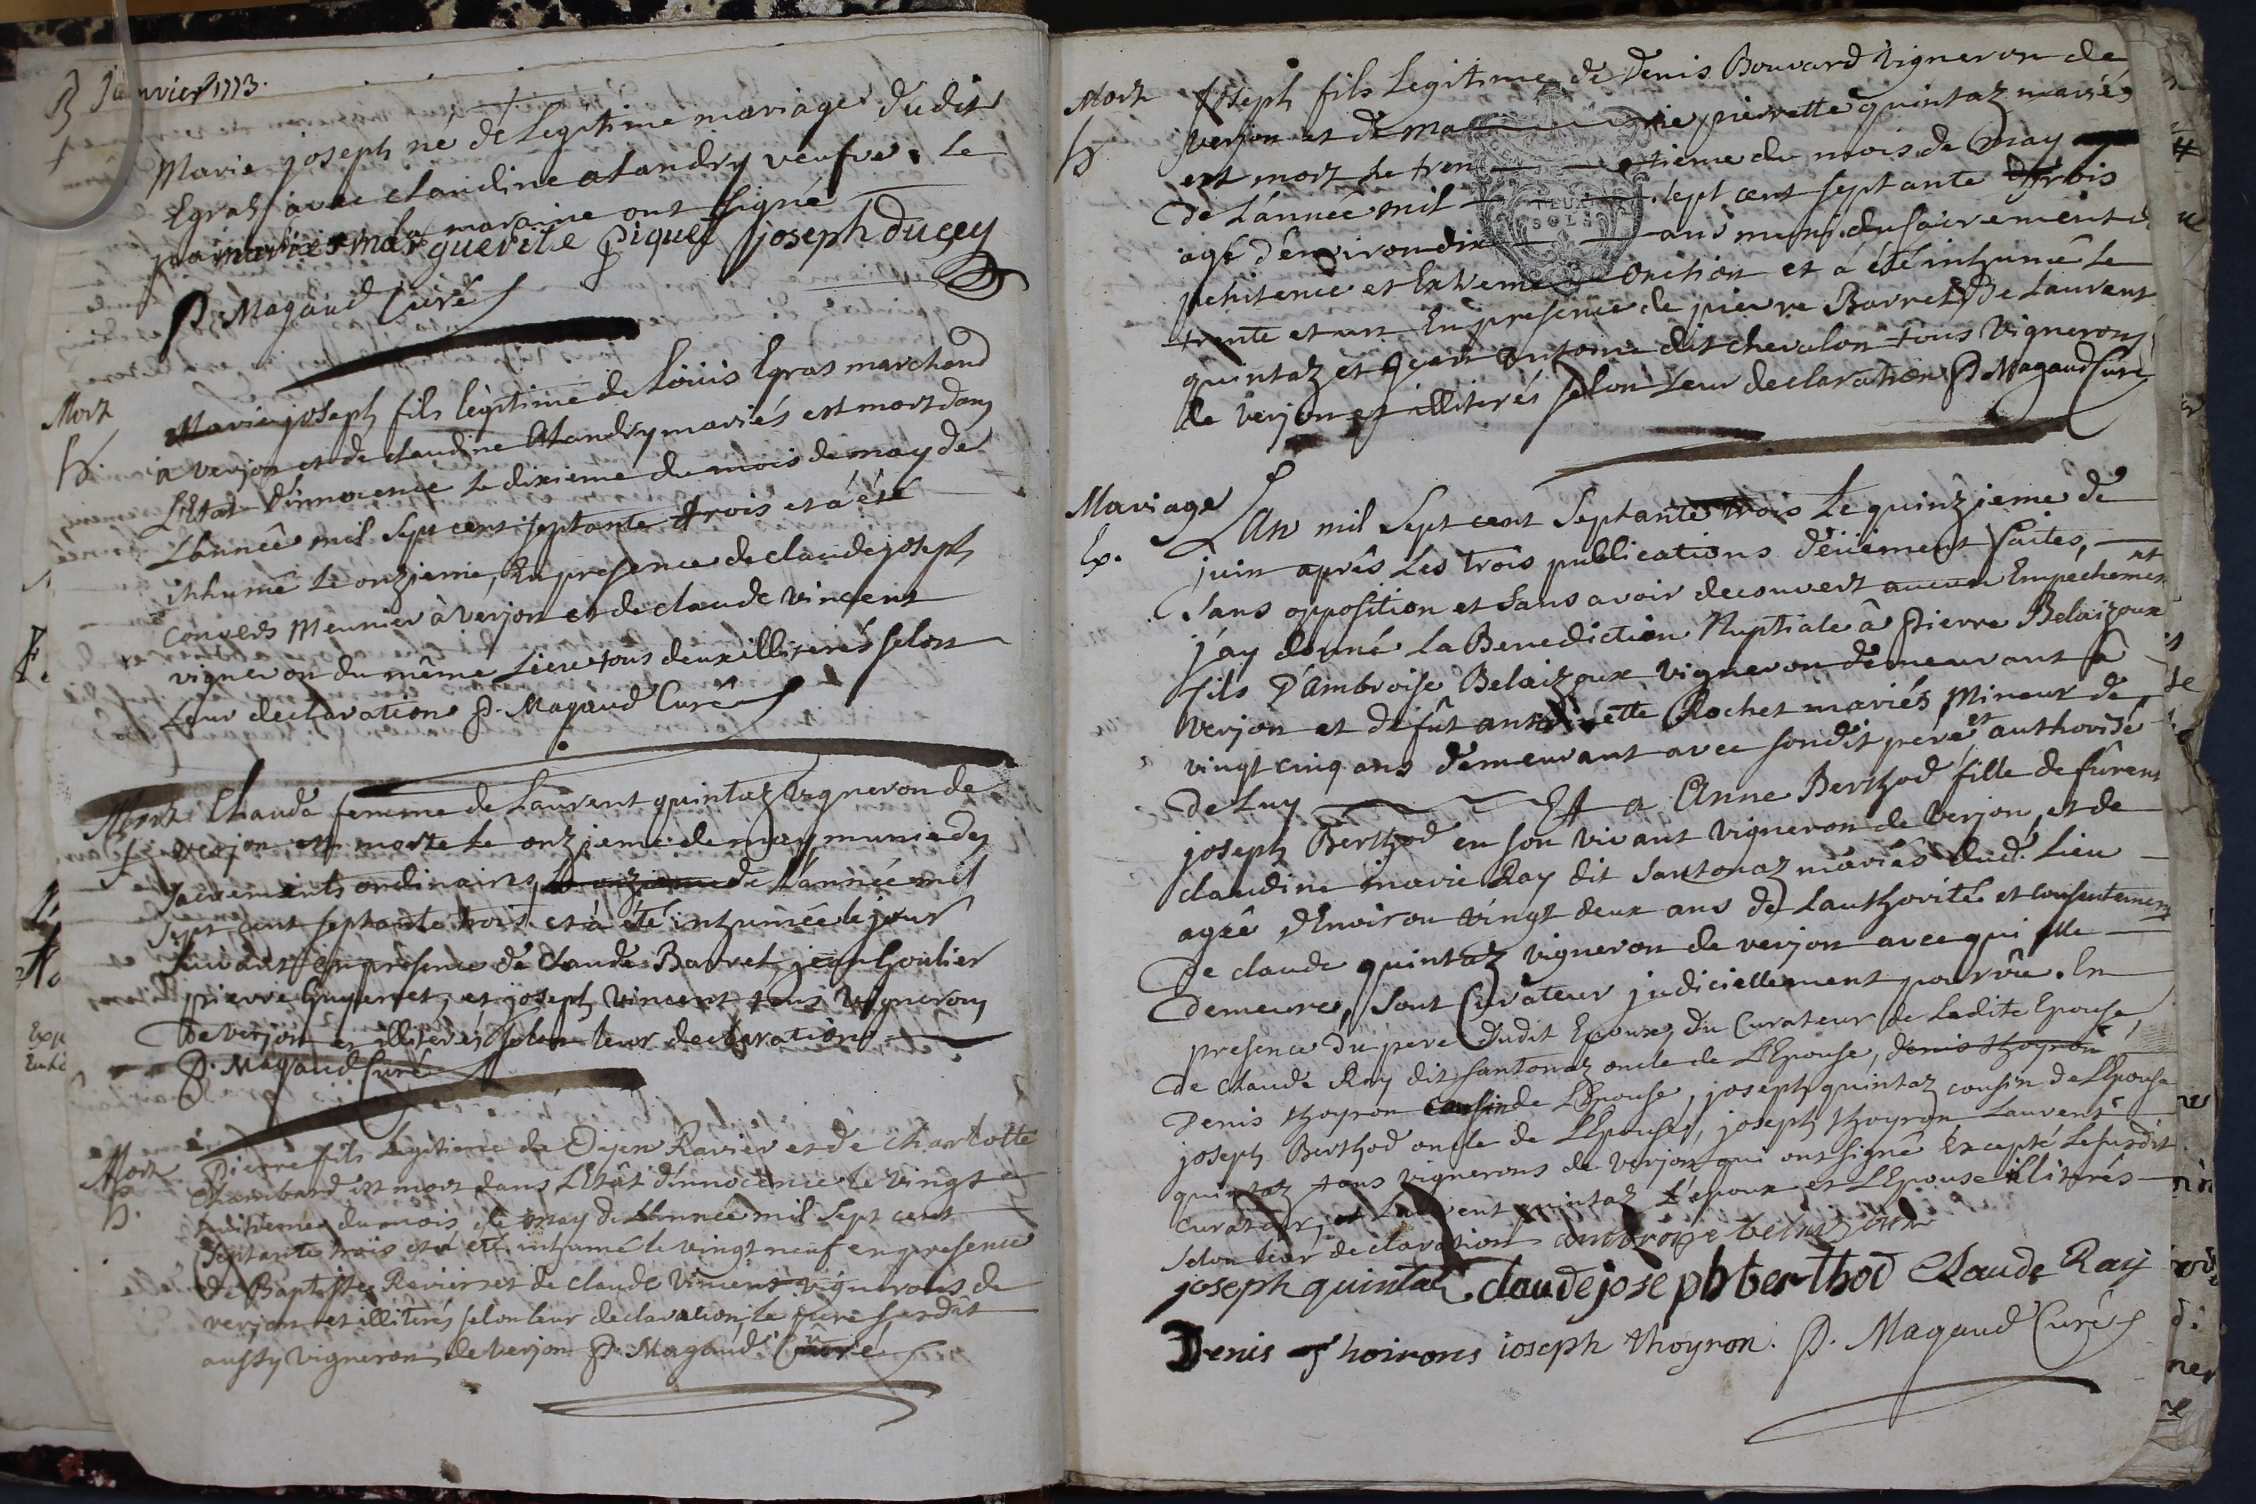 Janvier 1773.
Marie joseph né de Legitime mariage dudit
Egraz avec claudine alandry veufve. le
parain et la maraine ont signé
marie marguerite piquet joseph ducey
P. Magaud Curé
Mort
h.
Marie joseph fils legitime de Loüis Egras marchand
a verjon et de claudine Alandry mariés est mort dans
L'Etat d'innocence le dixieme du mois de may de
L'année mil sept cent septante trois et a été
inhumé le onzieme, En presence de claude joseph
convers Meunier à verjon et de claude vincent
vigneron du même Lieu tous deux illitirés selon
Leur declaration P. Magaud Curé
Mort
f
Claudá femme de Laurent quintaz vigneron de
verjon est morte le onzieme de may munie des
sacrements ordinaires de L'année mil
sept cent septante trois et à été inhumée le jour
suivant en presence de claude Barret, jean Goulier
pierre Guyennet, et joseph vincent tous vignerons
de verjon et illiterés selon leur declaration
P. Magaud Curé
Mort
h.
Pierre fils Legitieme de Dijen Ravier et de charlotte
Chambard est mort dans L'Etat d'innocence le vingt
huitieme du mois de may de L'année mil sept cent
septante trois et a été inhumé le vingt neuf en presence
de Baptiste Ravier et de claude vincent vignerons de
verjon et illitirés selon leur declaration, le pere susdit
aussy vigneron de verjon P. Magaud Curé
Mort
h
Joseph fils Legitime de Denis Bouvard vigneron de
verjon et de marie pierrette quintaz mariés
est mort le trentieme du mois de may
de L'année mil sept cent septante trois
agé d'environ dix ans muni du sacrement de
penitence et Extreme Onction et à été inhumé le
trente et un En presence de pierre Barret, de Laurent
quintaz et jean antoine dit chevalon tous vignerons
de verjon et illitirés selon Leur declaration P. Magaud Curé
Mariage
Ex.
L'An mil Sept cent Septante trois Le quinzieme de
juin après Les trois publications düement faites,
Sans opposition et sans avoir decouvert aucun Empechement
j'ay donné La Benediction Nuptiale à Pierre Belaizoux
fils d'Ambroise Belaizoux vigneron demeurant à
verjon et de fût Rochet mariés Mineur de
vingt cinq ans demeurant avec sondit pere et authorisé
de Luy Et a Anne Berthod fille de fûrent
joseph Berthod en son vivant vigneron de verjon, et de
claudine marie Ray dit Santonaz mariés dud. Lieu
agée d'Environ vingt deux ans de L'authorité et consentement
De claude quintaz vigneron de verjon avec qui elle
demeure, sont Curateur judiciellement pourvû. En
presence du pere dudit Epoux, du Curateur de Ladite Epouse
de claude Ray dit santonaz oncle de L'Epouse, denis thoyron
Denis thoyron cousin de L'Epouse, joseph quintaz cousin de L'Epouse
joseph Berthod oncle de L'Epouse, joseph thoyron Laurent
quintaz tous vignerons de verjon qui ont signé Excepté Le susdit
Curateur, et Laurent quintaz L'epoux et L'Epouse illitirés
selon leur declaration ambroise belaizoux
joseph quintaz claude joseph berthod Claude Ray
Denis thoirons ioseph thoyron. P. Magaud Curé